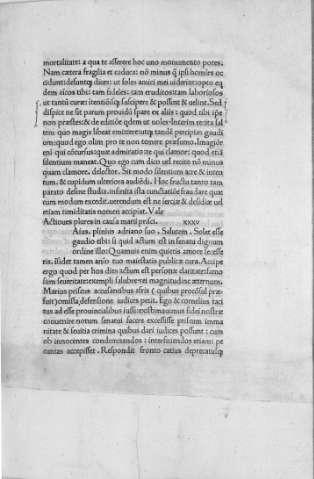 mortalitate: a qua te asserere hoc uno monumento potes.
Nam cætera fragilia et caduca: nõ minus ꝗ̃ ipsi homies oc
cidunt: desinuntq; dices: ut soles amici mei uiderint: opto eq
dem
ut tantũ curæ: itentiõisq; suscipere & possint & uelint. Sed
dispice ne sit parum prouidũ spare ex aliis: quod tibi ipse
non præstes: & de editiõe qdem ut uoles. Interim recita sal
tem: quo magis libeat emittere: utq; tandẽ percipias gaudi
um: quod ego olim pro te non temere præsumo. Imagiõr
eni qui cõcursus: quæ admiratio: te qui clamor: quod etiã
silentium maneat. Quo ego cum dico uel recito nõ minus
quam clamore. delector. Sit modo silentium acre & inten
tum: & cupidum ulteriora audiẽdi. Hoc fructu tanto tam
parato desine studia
cum modum excedit. uerendum est ne ierciæ & desidiæ uel
etiam timiditatis nomen accipiat. Vale
Actiones plures in causa marii prisci. xxxv
plinius adriano suo. Salutem. Solet esse
gaudio tibi: si quid actum est in senatu dignum
ordine illo: Quamuis enim quietis amore secesse
ris. isidet tamen aĩo tuo maiestatis publicæ cura. Accipe
ergo quod per hos dies actum est personæ claritate: famo
sum seueritate: exempli salubre: rei magnitudine æternum.
Marius priscus accusantibus afris (quibus procõsul præ
fuit) omissa defensione iudices petit. Ego & cornelius taci
tus ad esse prouincialibus iussi: existimauimus fidei nostræ
conuenire notum senatui facere excessisse priscum imma
nitate & sæuitia crimina quibus dari iudices possunt: cum
ob innocentes condemnandos: interficiendos etiam pe
cunias accepisset. Respondit fronto catius deprecatusq;